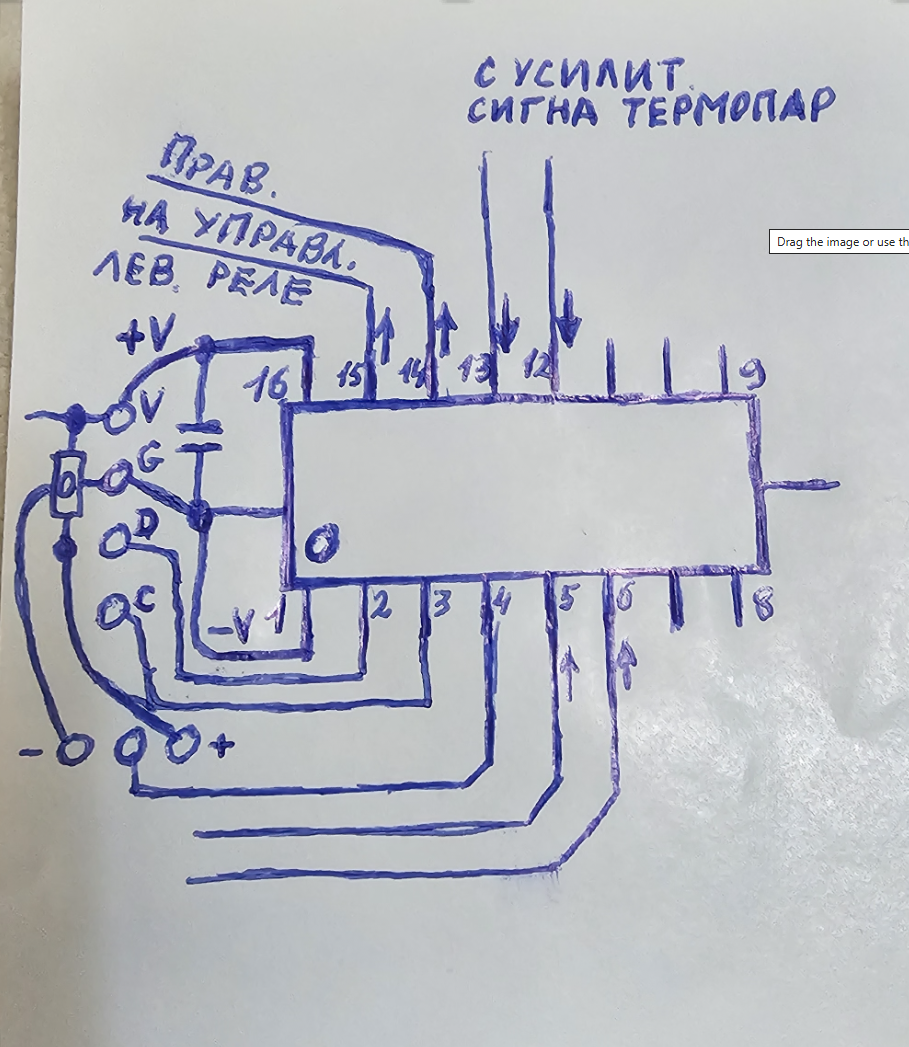 С УСИЛИТ.
СИГНА ТЕРМОПАР
ПРАВ.
НА УПРАВЛ.
ЛЕВ. РЕЛЕ
+V
16
15
14
13
12
9
V
G
D
C
-V
1
2
3
4
5
6
8
-
+
Drag the image or use th